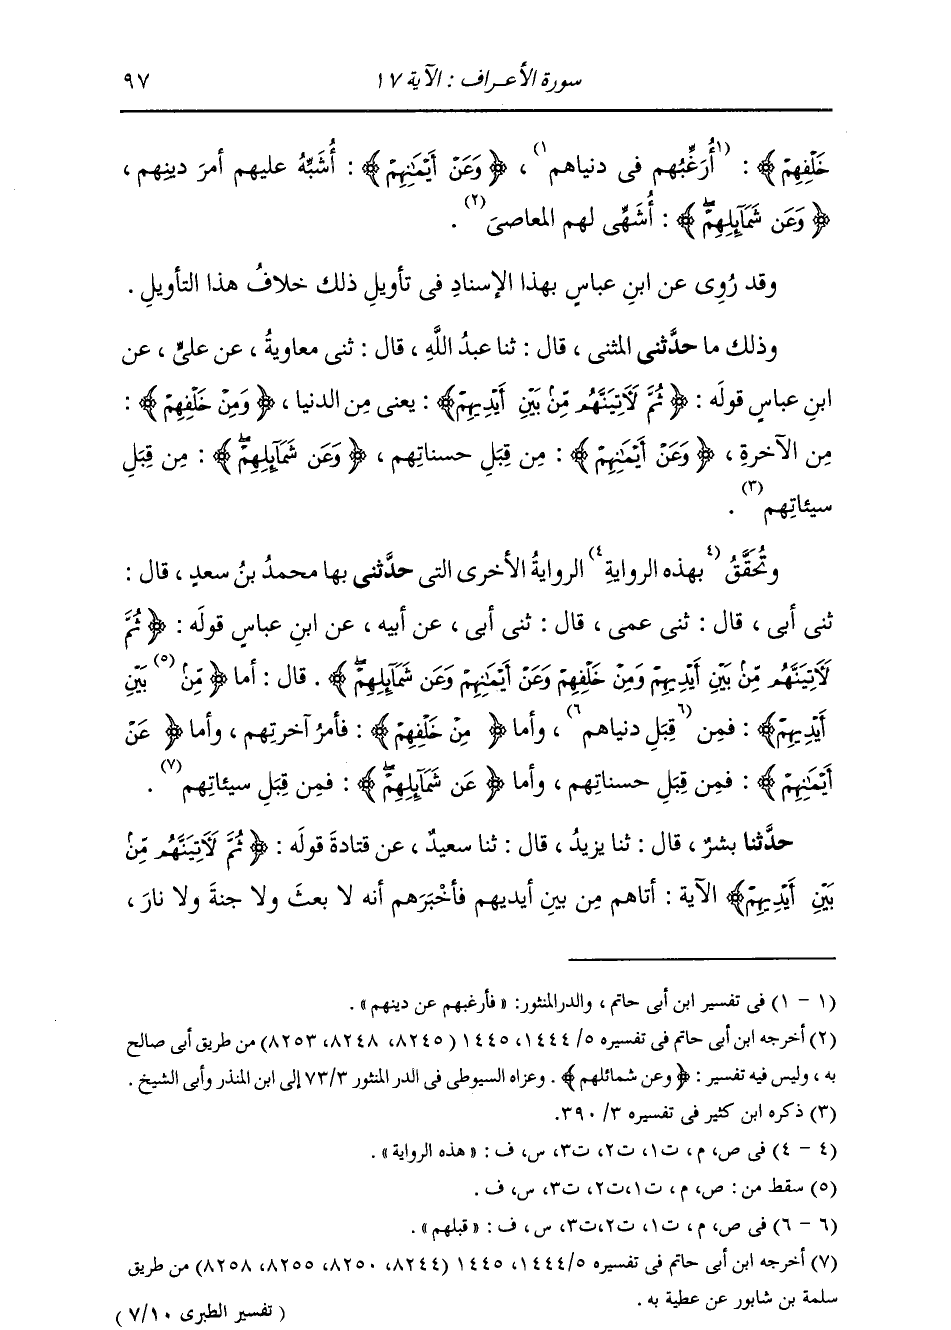 سورة الأعراف : الآية ١٧ ٩٧
خَلْفِهِمْ ﴾ : (١أُرَغِّبُهم فى دنياهم١) ، ﴿ وَعَنْ أَيْمَٰنِهِمْ ﴾ : أُشَبِّهُ عليهم أمرَ دينِهم ،
﴿ وَعَن شَمَآئِلِهِمْۖ ﴾ : أُشَهِّى لهم المعاصىَ(٢) .
وقد رُوِى عن ابنِ عباسٍ بهذا الإسنادِ فى تأويلِ ذلك خلافُ هذا التأويلِ .
وذلك ما حدَّثنى المثنى ، قال : ثنا عبدُ اللَّهِ ، قال : ثنى معاويةُ ، عن علىٍّ ، عن
ابنِ عباسٍ قولَه : ﴿ ثُمَّ لَآتِيَنَّهُم مِّنۢ بَيْنِ أَيْدِيهِمْ﴾ : يعنى مِن الدنيا ، ﴿ وَمِنْ خَلْفِهِمْ ﴾ :
مِن الآخرةِ ، ﴿ وَعَنْ أَيْمَٰنِهِمْ ﴾ : مِن قِبَلِ حسناتِهم ، ﴿ وَعَن شَمَآئِلِهِمْۖ ﴾ : مِن قِبَلِ
سيئاتِهم(٣) .
وتُحَقَّقُ (٤بهذه الروايةِ٤) الروايةُ الأخرى التى حدَّثنى بها محمدُ بنُ سعدٍ ، قال :
ثنى أبى ، قال : ثنى عمى ، قال : ثنى أبى ، عن أبيه ، عن ابنِ عباسٍ قولَه : ﴿ ثُمَّ
لَآتِيَنَّهُم مِّنۢ بَيْنِ أَيْدِيهِمْ وَمِنْ خَلْفِهِمْ وَعَنْ أَيْمَٰنِهِمْ وَعَن شَمَآئِلِهِمْۖ ﴾ . قال : أما ﴿ مِّنۢ(٥) بَيْنِ
أَيْدِيهِمْ﴾ : فمِن (٦قِبَلِ دنياهم٦) ، وأما ﴿ مِنْ خَلْفِهِمْ ﴾ : فأمرُ آخرتِهم ، وأما ﴿ عَنْ
أَيْمَٰنِهِمْ ﴾ : فمِن قِبَلِ حسناتِهم ، وأما ﴿ عَن شَمَآئِلِهِمْۖ ﴾ : فمن قِبَلِ سيئاتِهم(٧) .
حدَّثنا بشرٌ ، قال : ثنا يزيدُ ، قال : ثنا سعيدٌ ، عن قتادةَ قولَه : ﴿ ثُمَّ لَآتِيَنَّهُم مِّنۢ
بَيْنِ أَيْدِيهِمْ﴾ الآية : أتاهم مِن بينِ أيديهم فأخْبَرَهم أنه لا بعثَ ولا جنةَ ولا نارَ ،
(١ - ١) فى تفسير ابن أبى حاتم ، والدرالمنثور: « فأرغبهم عن دينهم » .
(٢) أخرجه ابن أبى حاتم فى تفسيره ٥/ ١٤٤٤، ١٤٤٥ ( ٨٢٤٥، ٨٢٤٨، ٨٢٥٣) من طريق أبى صالح
به ، وليس فيه تفسير : ﴿ وعن شمائلهم ﴾ . وعزاه السيوطى فى الدر المنثور ٧٣/٣ إلى ابن المنذر وأبى الشيخ .
(٣) ذكره ابن كثير فى تفسيره ٣/ ٣٩٠.
(٤ - ٤) فى ص، م ، ت١، ت٢، ت٣، س، ف : « هذه الرواية » .
(٥) سقط من : ص، م ، ت١،ت٢، ت٣، س، ف .
(٦ - ٦) فى ص، م ، ت١، ت٢،ت٣، س ، ف : « قبلهم » .
(٧) أخرجه ابن أبى حاتم فى تفسيره ١٤٤٤/٥، ١٤٤٥ (٨٢٤٤، ٨٢٥٠، ٨٢٥٥، ٨٢٥٨) من طريق
سلمة بن شابور عن عطية به .
( تفسير الطبرى ٧/١٠ )